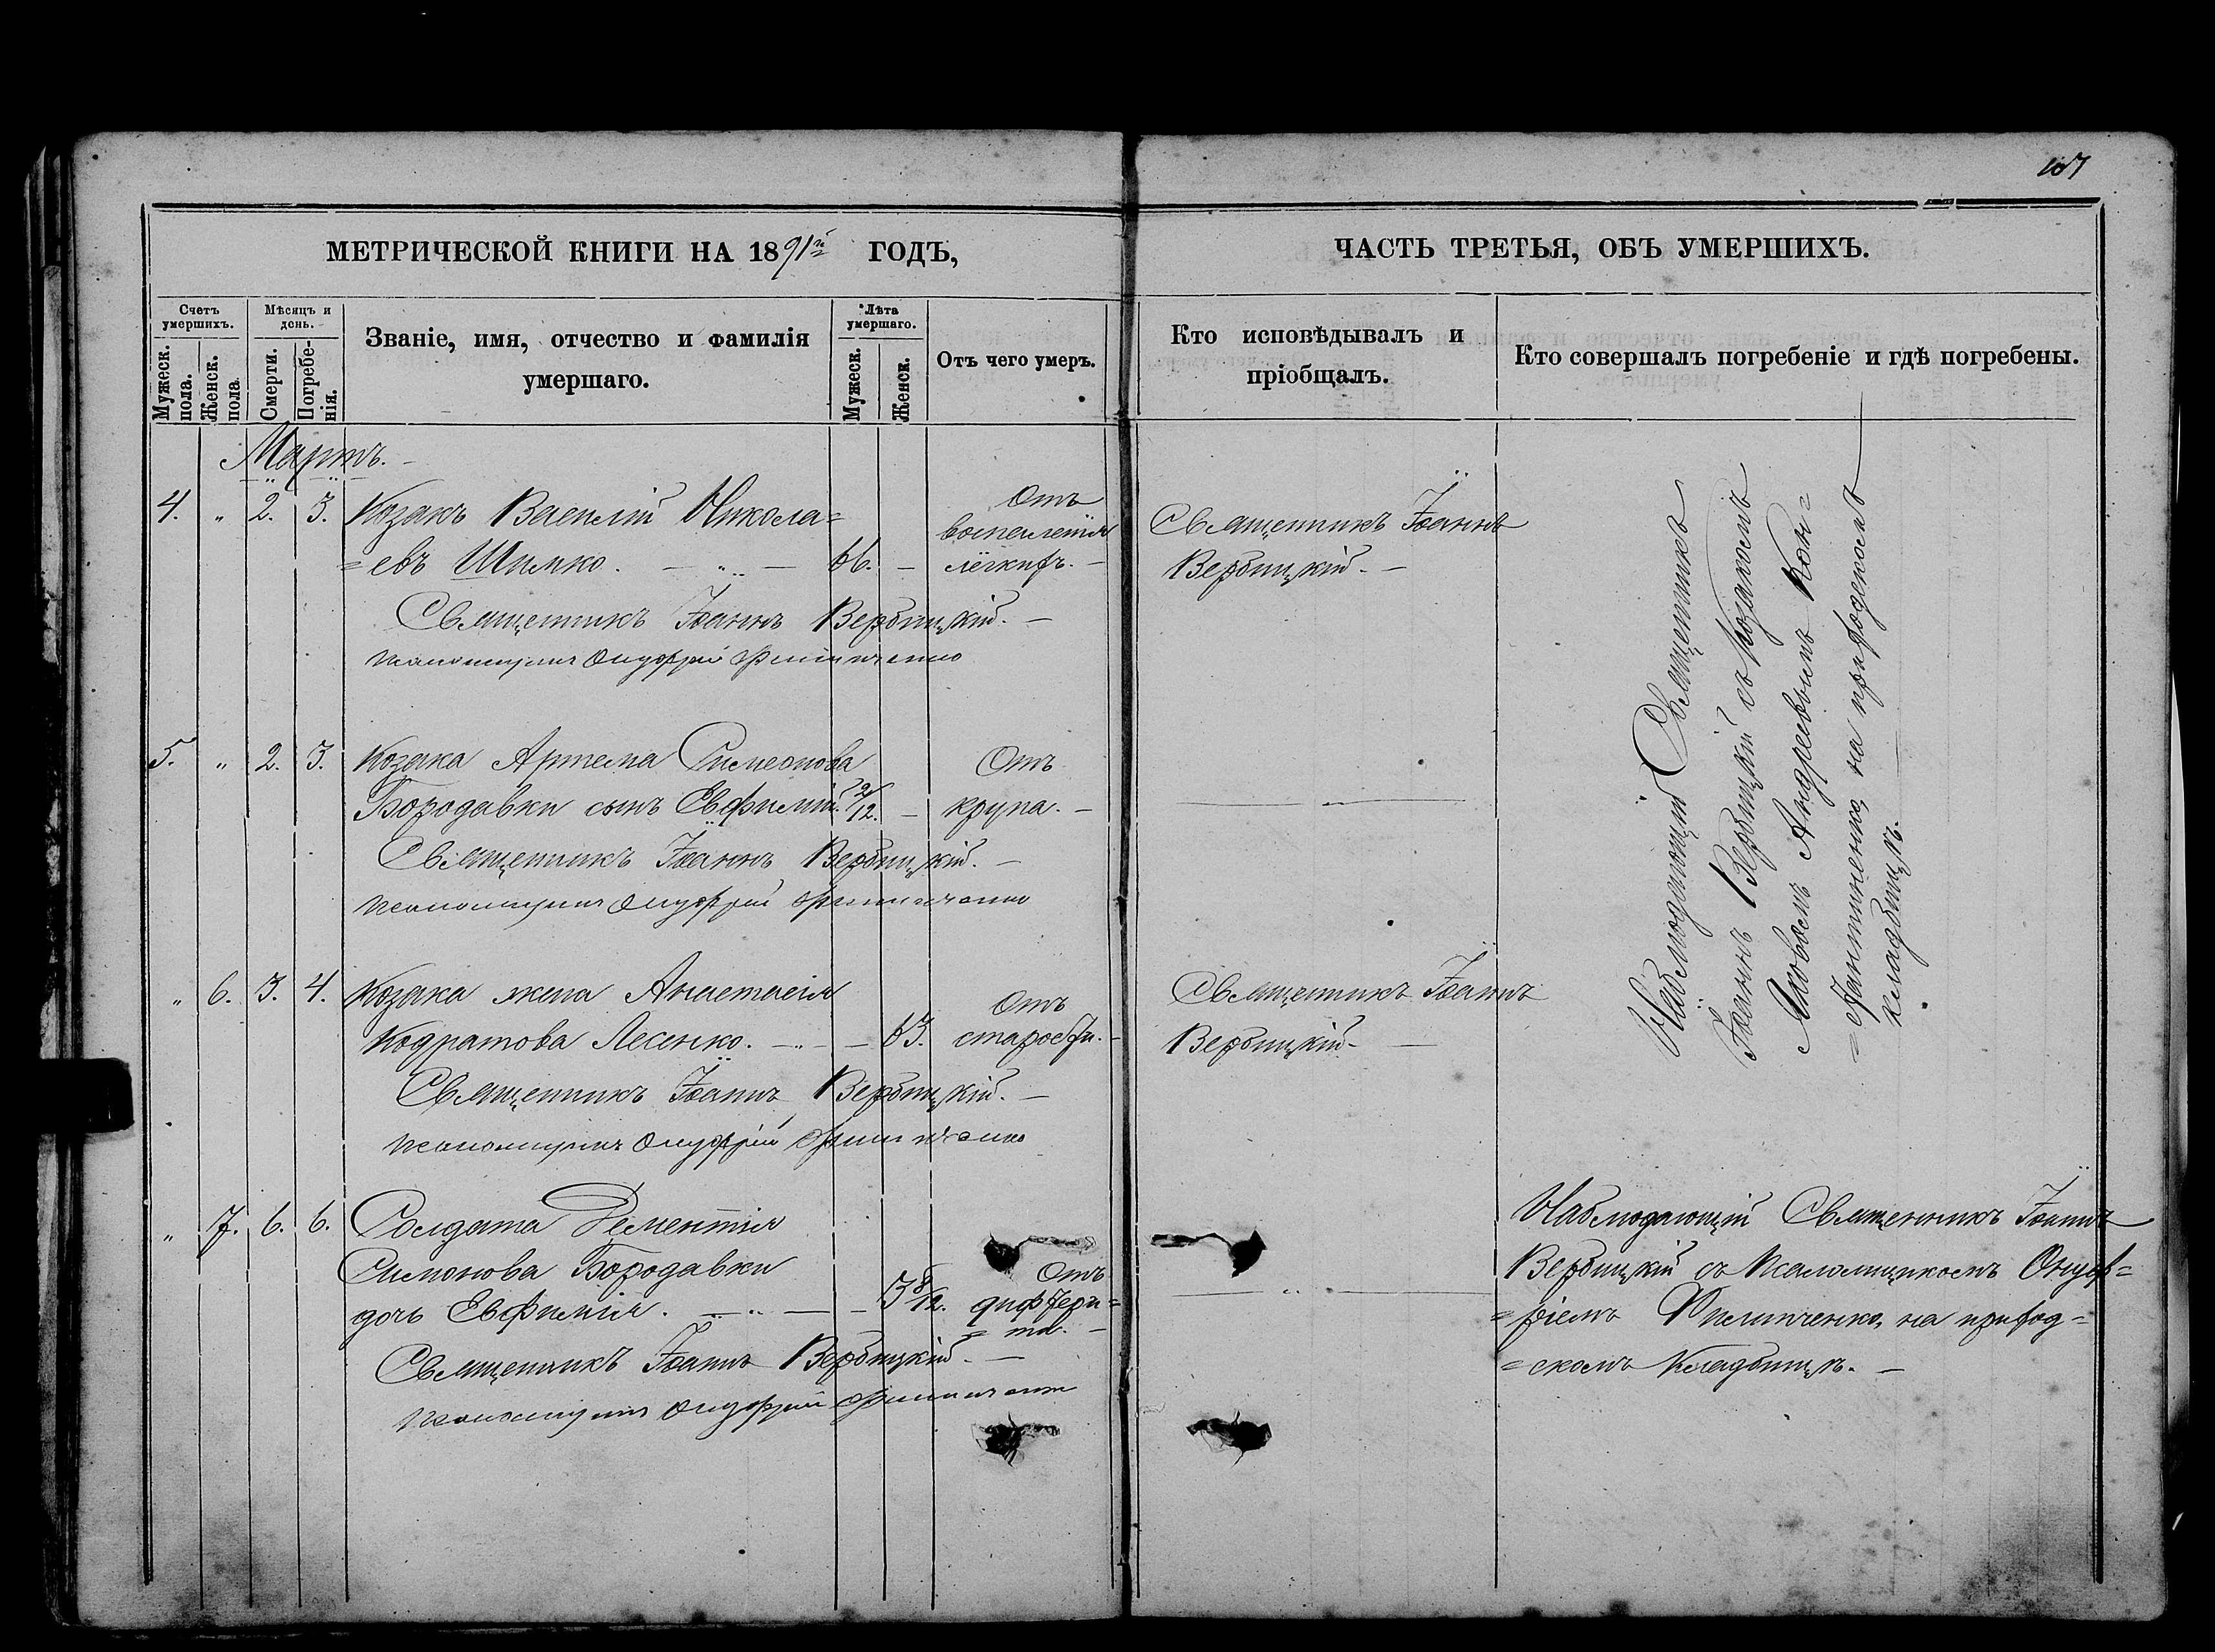 107
МЕТРИЧЕСКОЙ КНИГИ НА 1891й ГОДЪ,
Счетъ умершихъ.
Мужеск. пола.
Женск. пола.
Мѣсяцъ и день.
Смерти.
Погребенія.
Званіе, имя, отчество и фамилія
умершаго.
Лѣта умершаго.
Мужеск.
Женск.
Отъ чего умеръ.
Мартъ.
4. " 2. 3. Козакъ Василій Никола=
=евъ Шимко. — " — 66. —
Отъ
воспаленія
лёгкихъ. —
Священникъ Іоаннъ Вербицкій. —
Псаломщикъ Онуфрій Филипченко
5. " 2. 3. Козака Артема Симеонова
Бородавки сынъ Евфимій. 2/12. —
Отъ
крупа. —
Священникъ Іоаннъ Вербицкій. —
Псаломщикъ Онуфрій Филипченко
" 6. 3. 4. Козака жена Анастасія
Кодратова Лесенко. — " — 63.
Отъ
старости. —
Священникъ Іоаннъ Вербицкій. —
Псаломщикъ Онуфрій Филипченко
" 7. 6. 6. Солдата Дементія
Симонова Бородавки
дочь Евфимія. — " — 3 8/12.
Отъ
диффтери=
=та. —
Священникъ Іоаннъ Вербицкій. —
Псаломщикъ Онуфрій Филипченко
ЧАСТЬ ТРЕТЬЯ, ОБЪ УМЕРШИХЪ.
Кто исповѣдывалъ и
пріобщалъ.
Кто совершалъ погребеніе и гдѣ погребены.
Священникъ Іоаннъ
Вербицкій. —
— " —
Священникъ Іоаннъ
Вербицкій. —
— " —
Наблюдающій Священникъ
Іоаннъ Вербицкій съ козакомъ
Яковомъ Андреевымъ Кон=
на приходскомъ
кладбищѣ.
Наблюдающій Священникъ Іоаннъ
Вербицкій съ Псаломщикомъ Онуф=
=ріемъ Филипченко, на приход=
=скомъ кладбищѣ. —